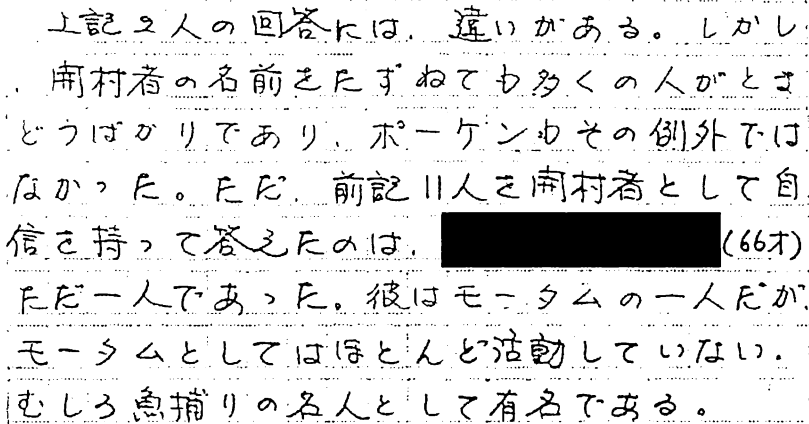 上記2人の回答には、違いがある。しかし
、開村者の名前をたずねても多くの人がとま
どうばかりであり、ポーケンもその例外では
なかった。ただ、前記11人を開村者として自
信を持って答えたのは、(66才)
ただ一人であった。彼はモータムの一人だが、
モータムとしてはほとんど活動していない。
むしろ魚捕りの名人として有名である。